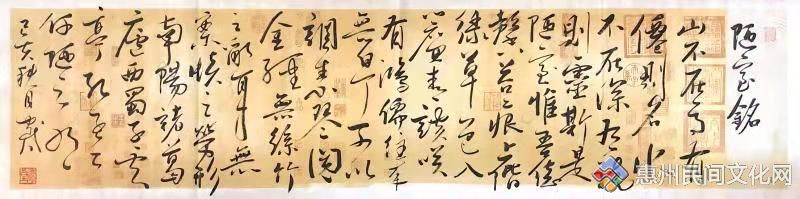 陋室銘
山不在高有
僊則名水
不在深有龍
則靈斯是
陋室惟吾德
馨苔痕上階
綠草色入
簾青談笑
有鴻儒往來
無白丁可以
調素琴閱
金經無絲竹
之亂耳無
案牘之勞形
南陽諸葛
廬西蜀子雲
亭孔子云
何陋之有
己亥秋月
惠州民间文化网